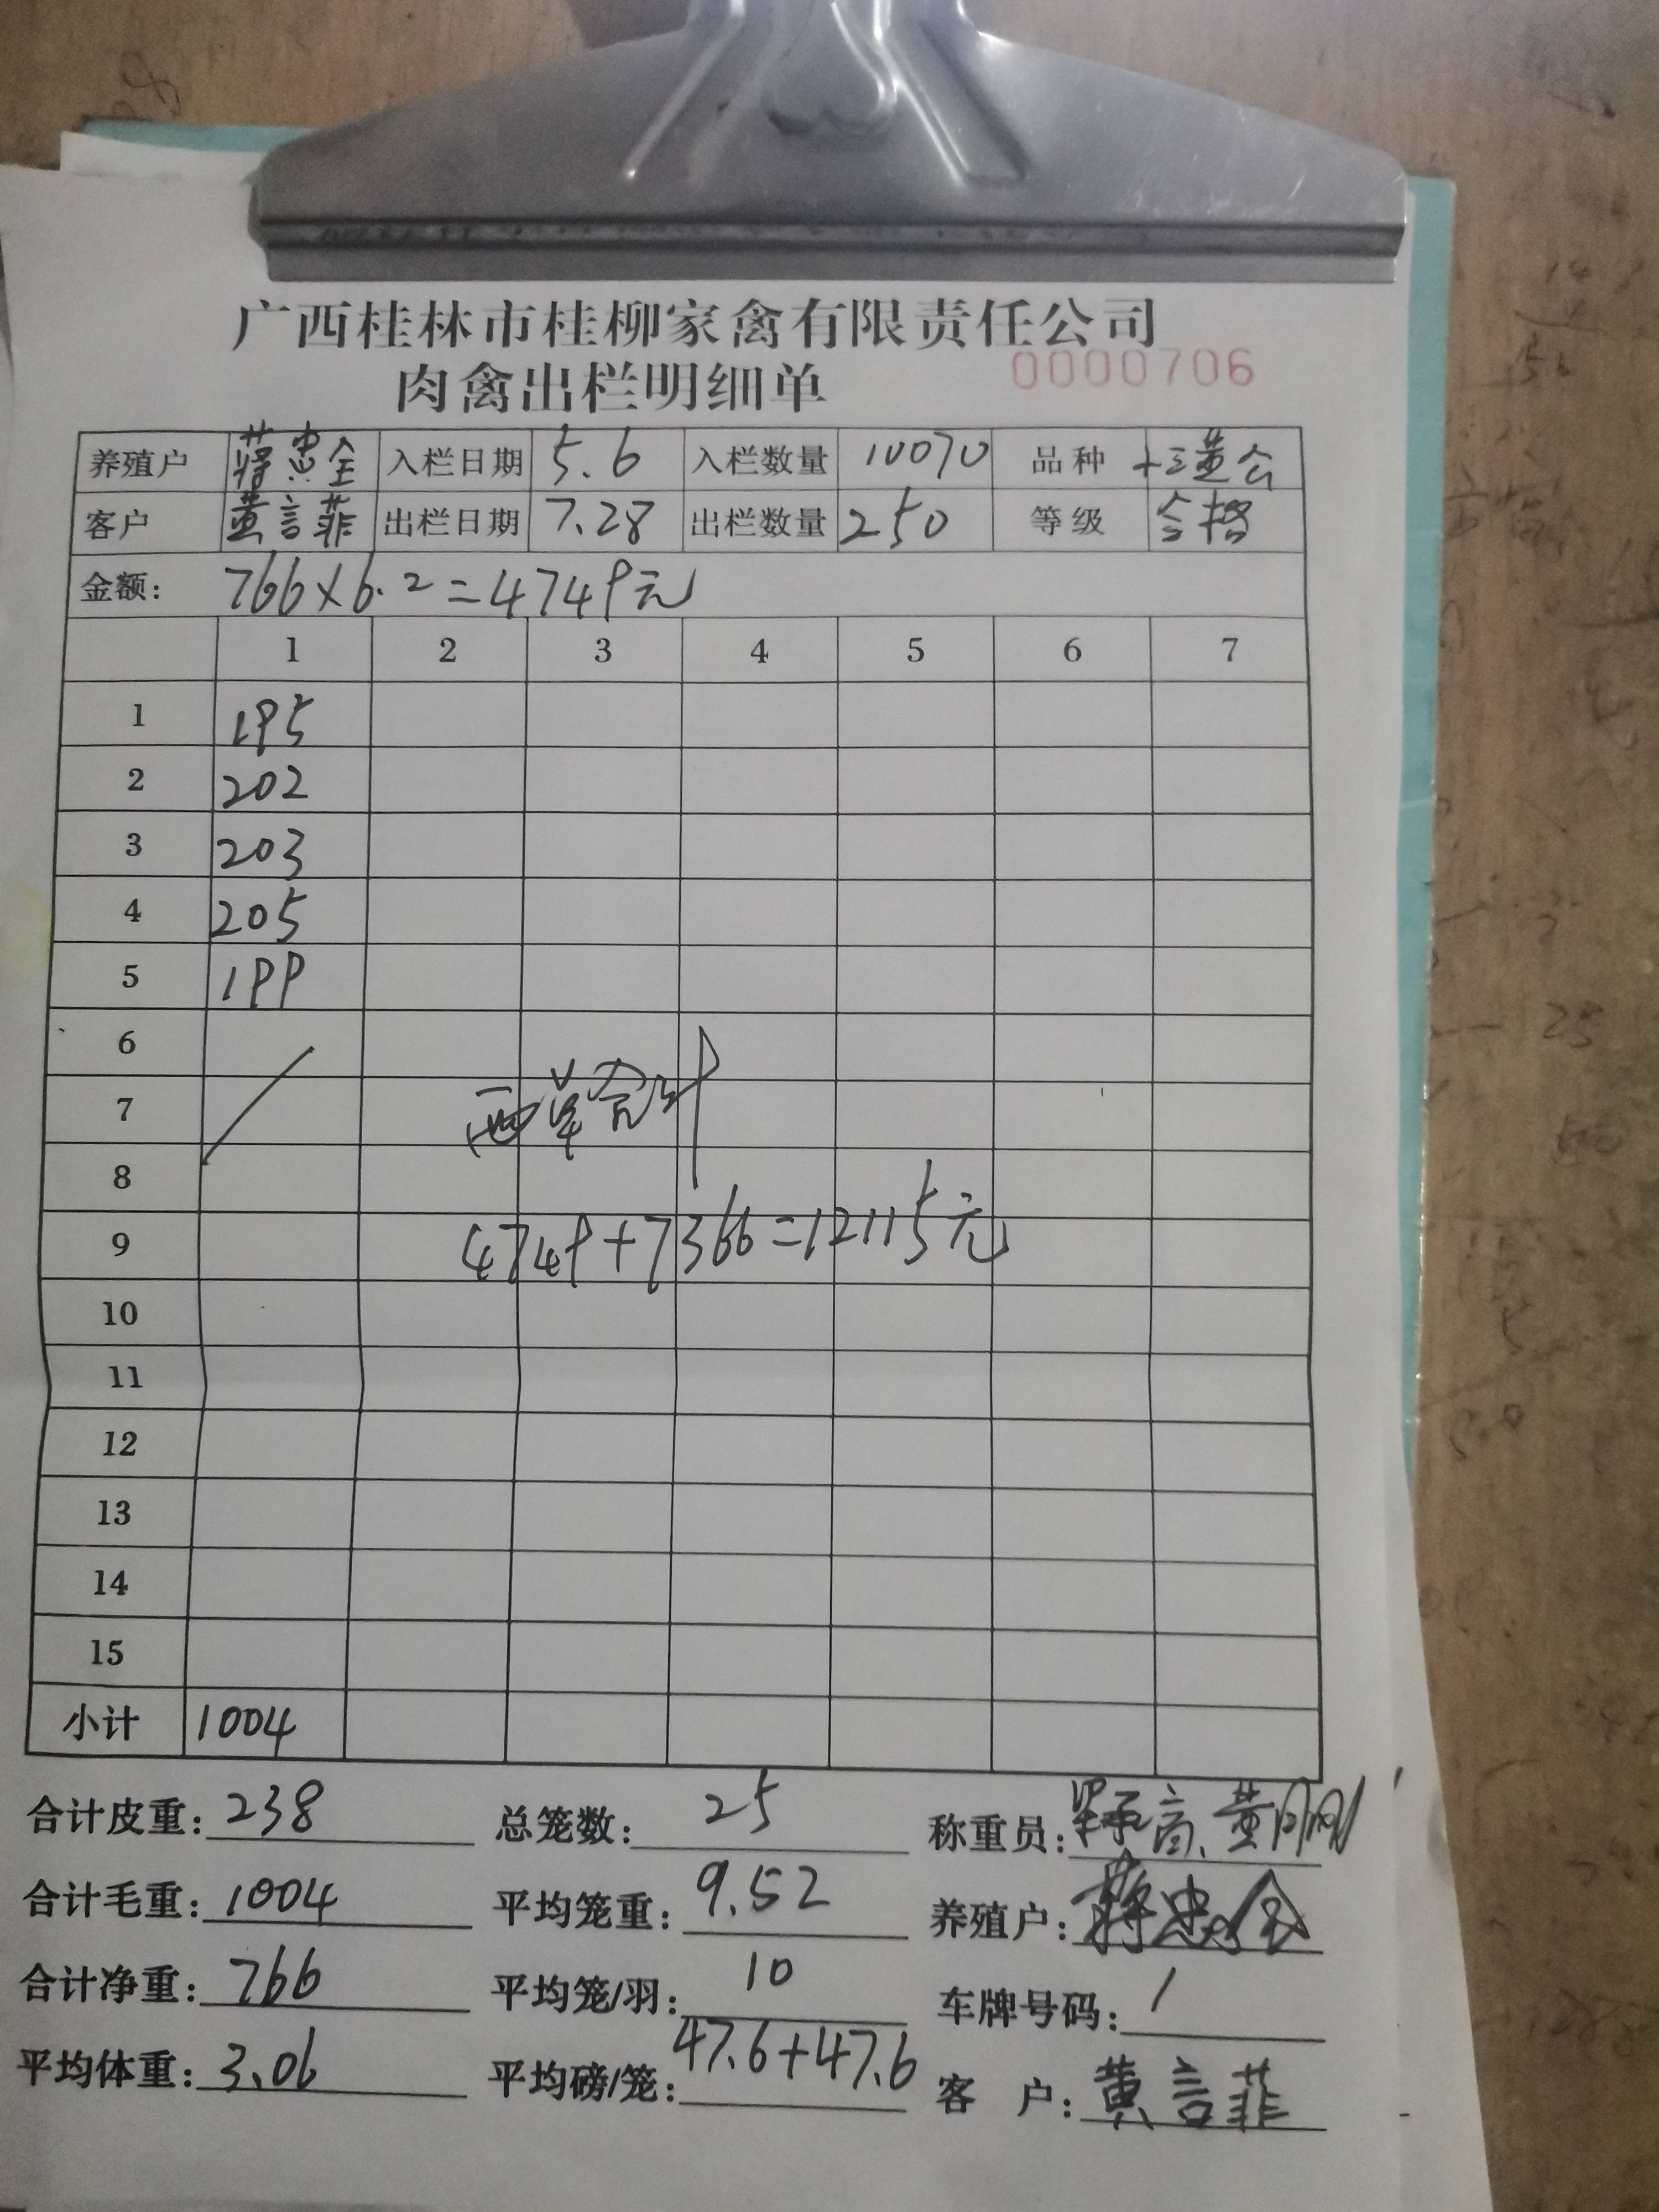 广西桂林市桂柳家禽有限责任公司
肉禽出栏明细单 0000706
养殖户 蒋忠全 入栏日期 5.6 入栏数量 10070 品种 土三黄公
客户 黄言菲 出栏日期 7.28 出栏数量 250 等级 合格
金额: 766×6.2=4749元
1 2 3 4 5 6 7
1 195
2 202
3 203
4 205
5 199
6
7 两单合计
8
9 4749+7366=12115元
10
11
12
13
14
15
小计 1004
合计皮重: 238 总笼数: 25 称重员:
合计毛重: 1004 平均笼重: 9.52 养殖户: 蒋忠全
合计净重: 766 平均笼/羽: 10 车牌号码: /
平均体重: 3.06 平均磅/笼: 47.6+47.6 客户: 黄言菲